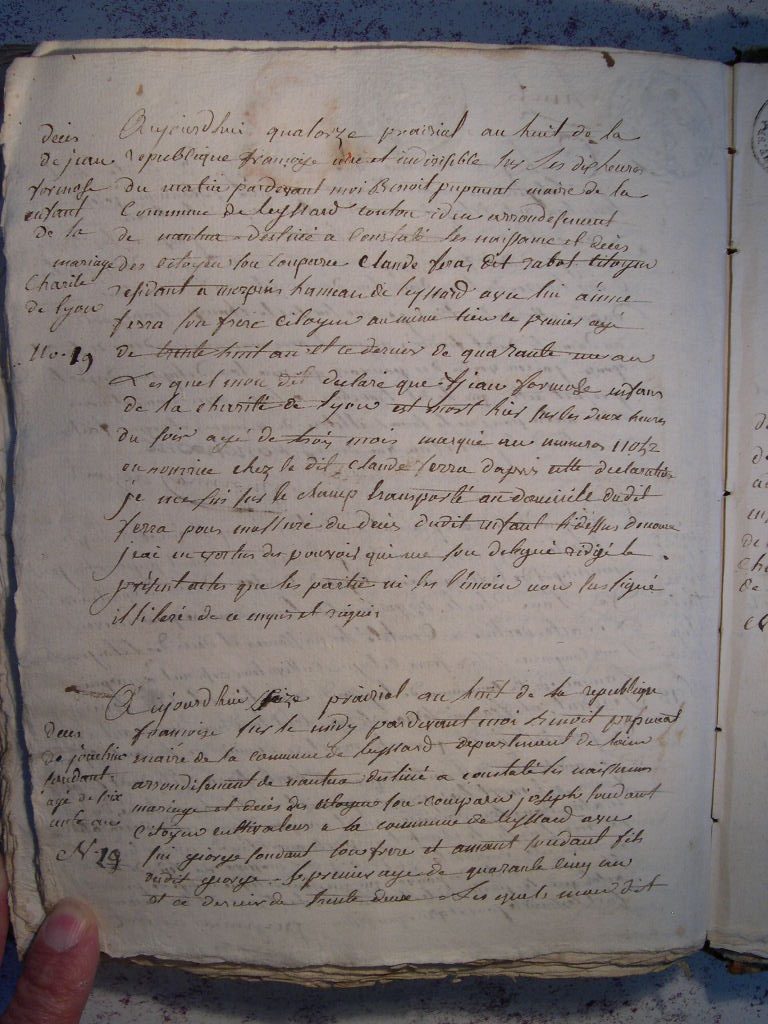 décès
de jean
formose
enfant
de la
Charité
de lyon
No. 19
Aujourdhui quatorze prairial an huit de la
republique françoise une et indivisible sur les dix heures
du matin pardevant moi Benoit maire de la
Commune de leyssard canton idem arrondissement
de nantua destiné a constaté les naissance et décès
mariage des citoyen son comparu Claude ferra dit rabot citoyen
residant a hameau de leyssard avec lui
ferra son frere citoyen au même lieu ce premier agé
de trente huit an et ce dernier de quarante un an
Lesquel mon dit declaré que jean formose enfans
de la charité de lyon est mort hier sur les deux heures
du soir agé de trois mois marqué au numeros 11042
en nourrice chez le dit Claude ferra dapres cette declaration
je me suis sur le champ transporté au domicile dudit
ferra pour massuré du décès dudit enfant
jeai en vertus des pouvoir qui me son delegué redigé le
présent actes que les partie ni les témoin non sus signé
illiteré de ce enquis et
décès
de joachin
soudant
agé de six
Aujourdhui seize prairial an huit de la republique
françoise sur le midy pardevant moi benoit
maire de la commune de leyssard departement de lain
arrondisement de nantua destiné a constaté les naissances
mariage et décès des citoyens son comparu joseph soudant
Citoyen cultivateur a la commune de leyssard avec
N. 19
lui george soudant son frere et amant soudant fils
dudit george. le premier age de quarante cinq an
et ce dernier de trente deux. Les quels mon dit